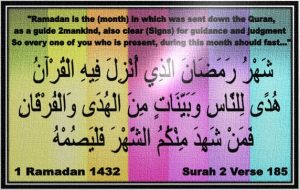 "Ramadan is the (month) in which was sent down the Quran,
as a guide 2mankind, also clear (Signs) for guidance and judgment
So every one of you who is present, during this month should fast..."
شَهْرُ رَمَضَانَ الَّذِي أُنْزِلَ فِيهِ الْقُرْآنُ
هُدًى لِلنَّاسِ وَبَيِّنَاتٍ مِنَ الْهُدَى وَالْفُرْقَانِ
فَمَنْ شَهِدَ مِنْكُمُ الشَّهْرَ فَلْيَصُمْهُ
1 Ramadan 1432 Surah 2 Verse 185